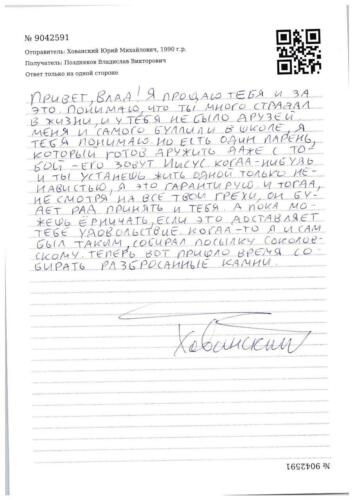 № 9042591
Отправитель: Хованский Юрий Михайлович, 1990 г.р.
Получатель: Поздняков Владислав Викторович
Ответ только на одной стороне
ПРИВЕТ, ВЛАД! Я ПРОЩАЮ ТЕБЯ И ЗА
ЭТО. ПОНИМАЮ, ЧТО ТЫ МНОГО СТРАДАЛ
В ЖИЗНИ, И У ТЕБЯ НЕ БЫЛО ДРУЗЕЙ.
МЕНЯ И САМОГО БУЛЛИЛИ В ШКОЛЕ, Я
ТЕБЯ ПОНИМАЮ. НО ЕСТЬ ОДИН ПАРЕНЬ,
КОТОРЫЙ ГОТОВ ДРУЖИТЬ ДАЖЕ С ТО-
БОЙ - ЕГО ЗОВУТ ИИСУС. КОГДА-НИБУДЬ
И ТЫ УСТАНЕШЬ ЖИТЬ ОДНОЙ ТОЛЬКО НЕ-
НАВИСТЬЮ, Я ЭТО ГАРАНТИРУЮ. И ТОГДА,
НЕ СМОТРЯ НА ВСЕ ТВОИ ГРЕХИ, ОН БУ-
ДЕТ РАД ПРИНЯТЬ И ТЕБЯ. А ПОКА МО-
ЖЕШЬ ЕРНИЧАТЬ, ЕСЛИ ЭТО ДОСТАВЛЯЕТ
ТЕБЕ УДОВОЛЬСТВИЕ. КОГДА-ТО Я И САМ
БЫЛ ТАКИМ, СОБИРАЛ ПОСЫЛКУ СОКОЛОВ-
СКОМУ. ТЕПЕРЬ ВОТ ПРИШЛО ВРЕМЯ СО-
БИРАТЬ РАЗБРОСАННЫЕ КАМНИ.
Хованский
№ 9042591